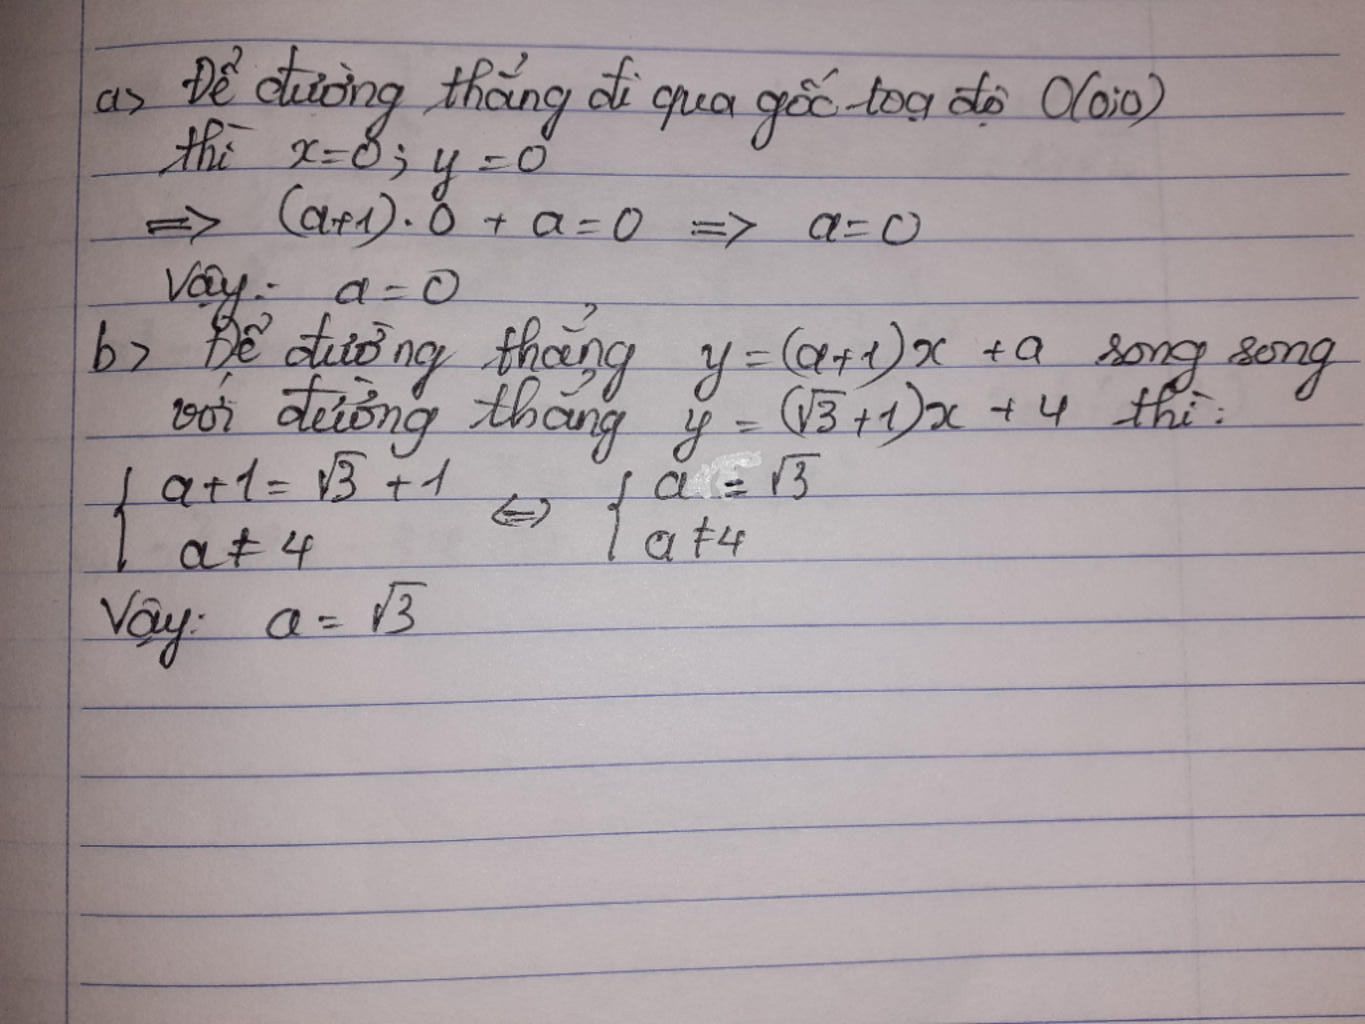 a> Để đường thẳng đi qua gốc toạ độ O(0;0)
thì x=0; y=0
=> (a+1).0 + a=0 => a=0
Vậy: a=0
b> Để đường thẳng y=(a+1)x +a song song
với đường thẳng y=(√3+1)x+4 thì:
{ a+1=√3+1 <=> { a =√3
a≠4 a≠4
Vậy: a=√3